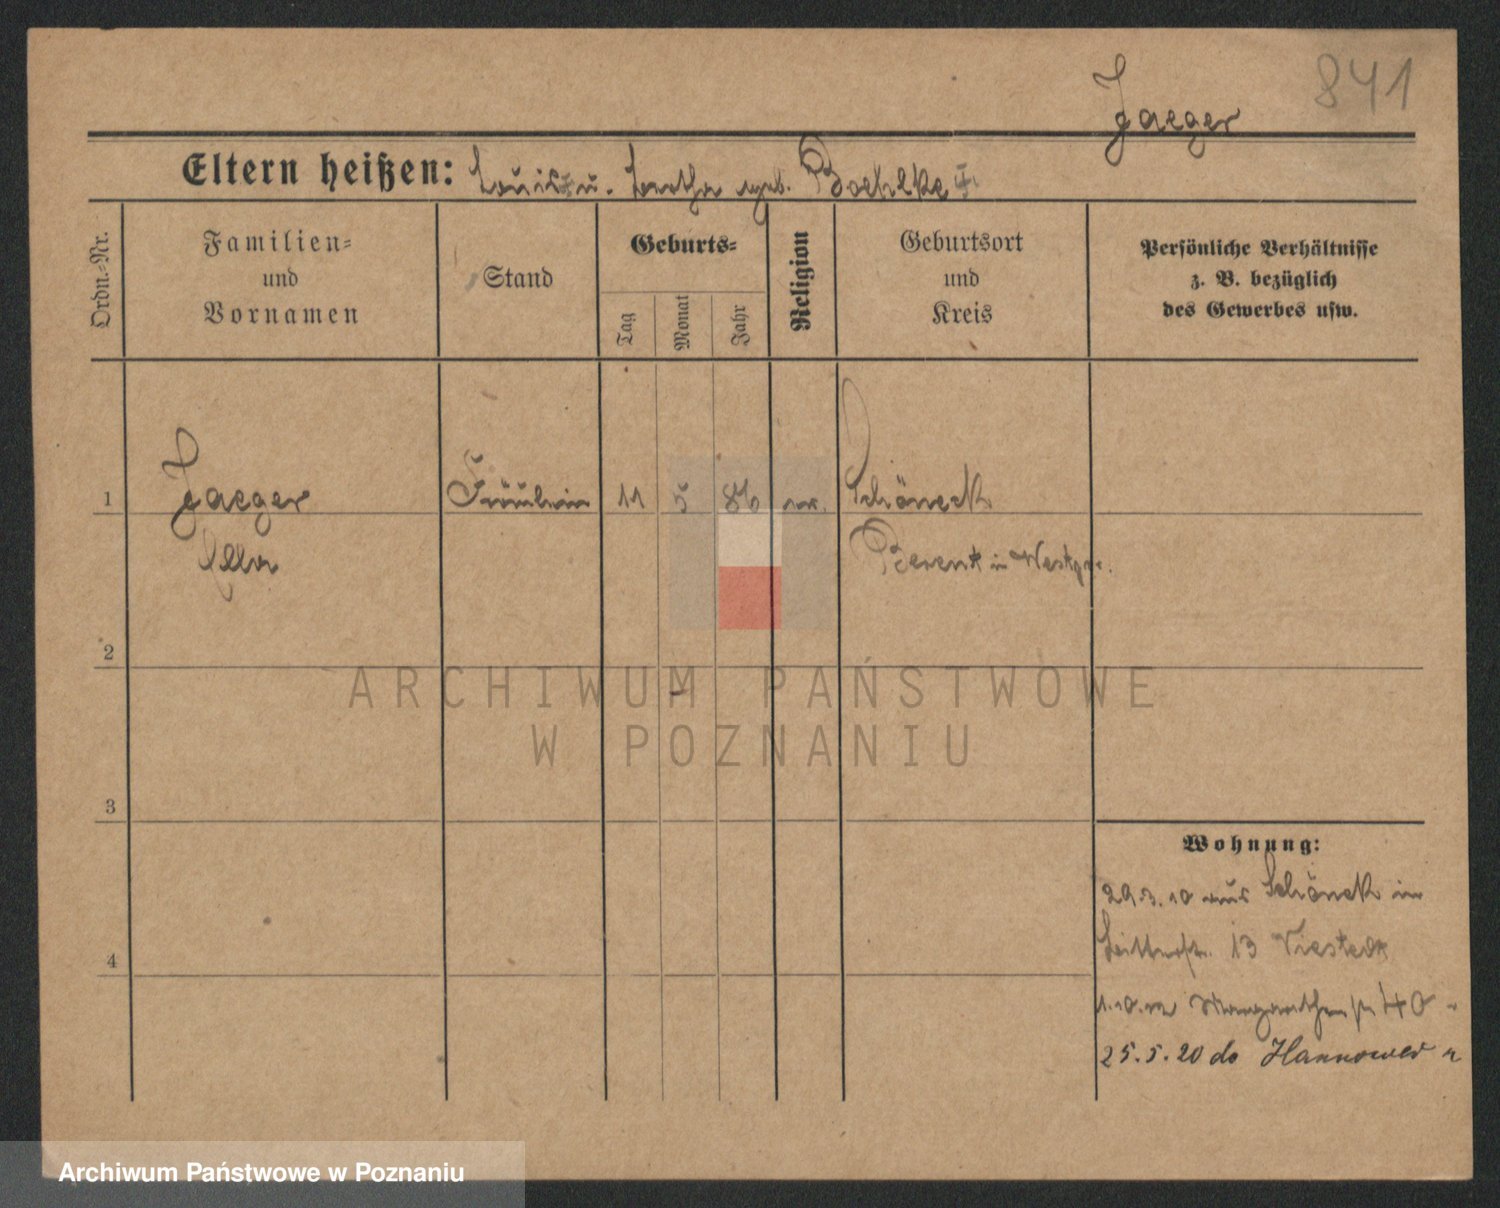 841
Jaeger
Eltern heißen: Louis u. geb. Boehlke
Ordn.-Nr.
Familien-
und
Vornamen
Stand
Geburts-
Tag
Monat
Jahr
Religion
Geburtsort
und
Kreis
Persönliche Verhältnisse
z. B. bezüglich
des Gewerbes usw.
1
Jaeger
Fräulein
11
5
86
ev.
Schöneck
Ella
Berent in Westpr.
2
3
4
Wohnung:
29.3.10 aus Schöneck in
13
Margarethenstr 40
25.5.20 do Hannower
ARCHIWUM PAŃSTWOWE
W POZNANIU
Archiwum Państwowe w Poznaniu